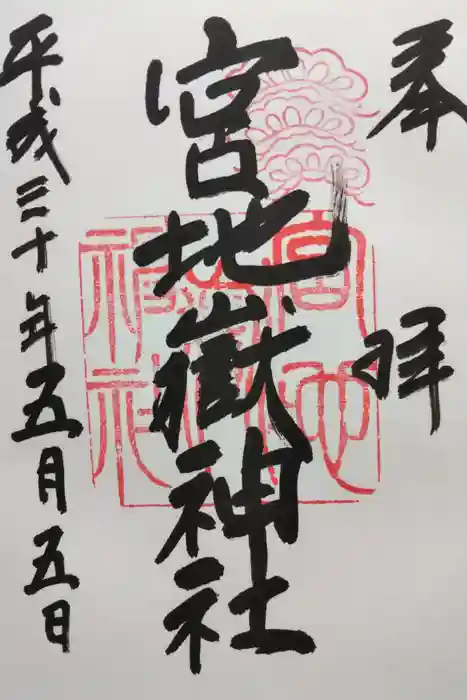 奉拝
宮地嶽神社
平成三十年五月五日
宮地嶽神社